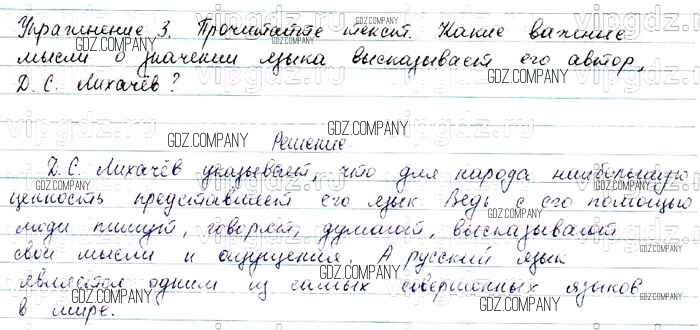 Упражнение 3. Прочитайте текст. Какие важные
мысли о значении языка высказывает его автор,
Д. С. Лихачёв?
Решение
Д. С. Лихачёв указывает, что для народа наибольшую
ценность представляет его язык. Ведь с его помощью
люди пишут, говорят, думают, высказывают
свои мысли и ощущения. А русский язык
является одним из самых совершенных языков
в мире.
GDZ.COMPANY
vipgdz.ru